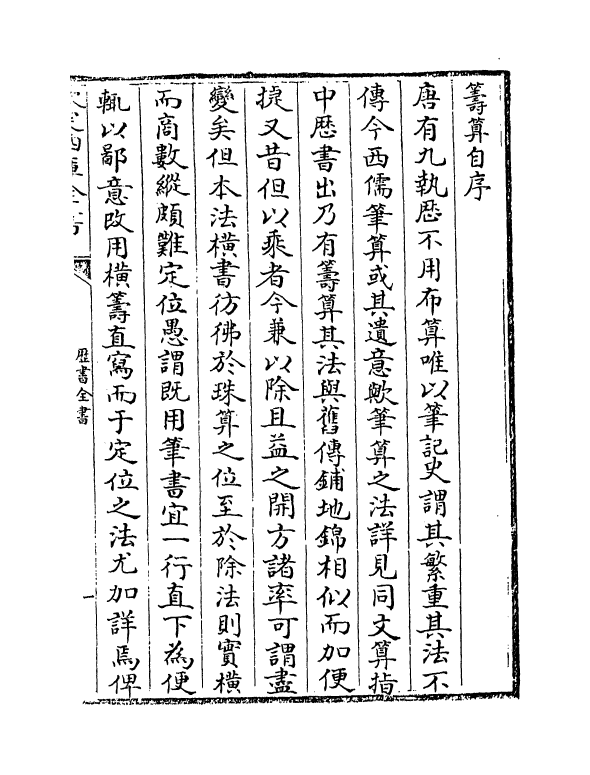 籌算自序
唐有九執歴不用布算唯以筆記史謂其繁重其法不
傳今西儒筆算或其遺意歟筆算之法詳見同文算指
中歴書出乃有籌算其法與舊傳鋪地錦相似而加便
捷又昔但以乘者今兼以除且益之開方諸率可謂盡
變矣但本法橫書彷彿於珠算之位至於除法則實橫
而商數縱頗難定位愚謂旣用筆書宜一行直下為便
輒以鄙意改用橫籌直寫而于定位之法尤加詳焉俾
欽定四庫全書
歴書全書
一